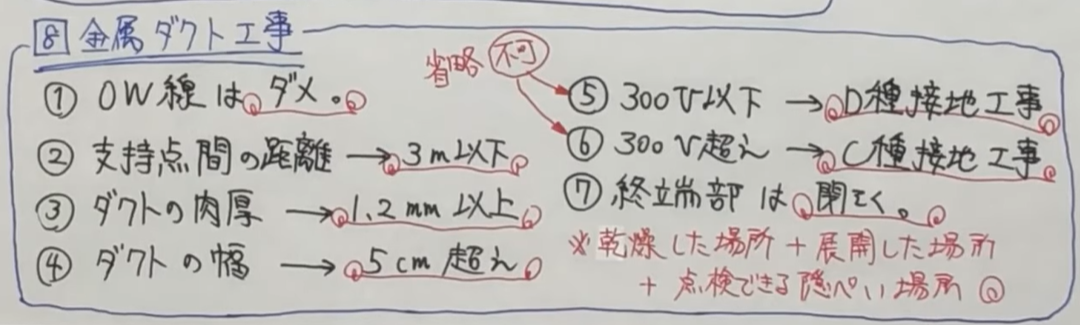 8 金属ダクト工事
① OW線はダメ。
② 支持点間の距離 → 3m以下
③ ダクトの肉厚 → 1.2mm以上
④ ダクトの幅 → 5cm超え
省略 不可
⑤ 300V以下 → D種接地工事
⑥ 300V超え → C種接地工事
⑦ 終端部は閉そく。
※乾燥した場所+展開した場所
+点検できる隠ぺい場所